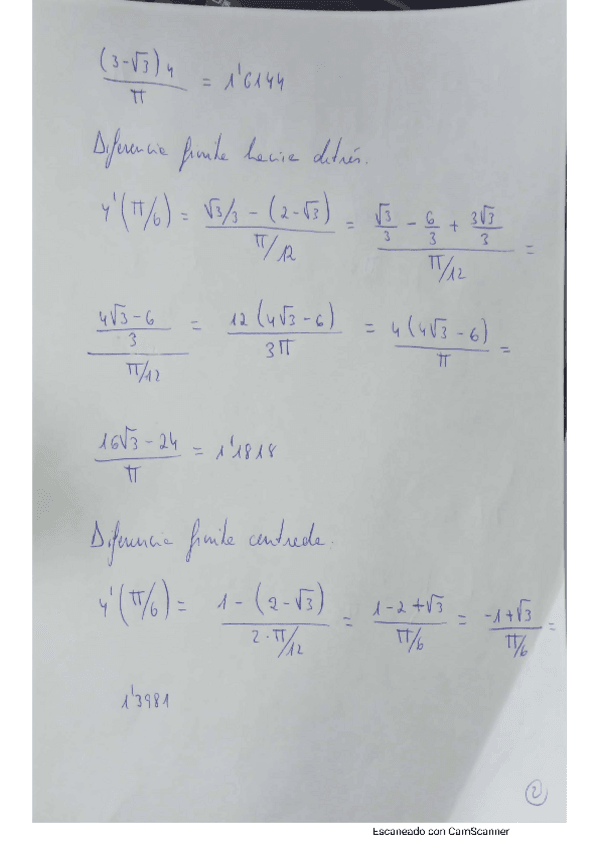 (3-√3)4/π = 1'6144
Diferencia finita hacia detrás.
y'(π/6) = (√3/3 - (2-√3))/(π/12) = (√3/3 - 6/3 + 3√3/3)/(π/12) =
((4√3-6)/3)/(π/12) = 12(4√3-6)/3π = 4(4√3-6)/π =
(16√3-24)/π = 1'1818
Diferencia finita centrada.
y'(π/6) = (1-(2-√3))/(2·π/12) = (1-2+√3)/(π/6) = (-1+√3)/(π/6) =
1'3981
2
Escaneado con CamScanner